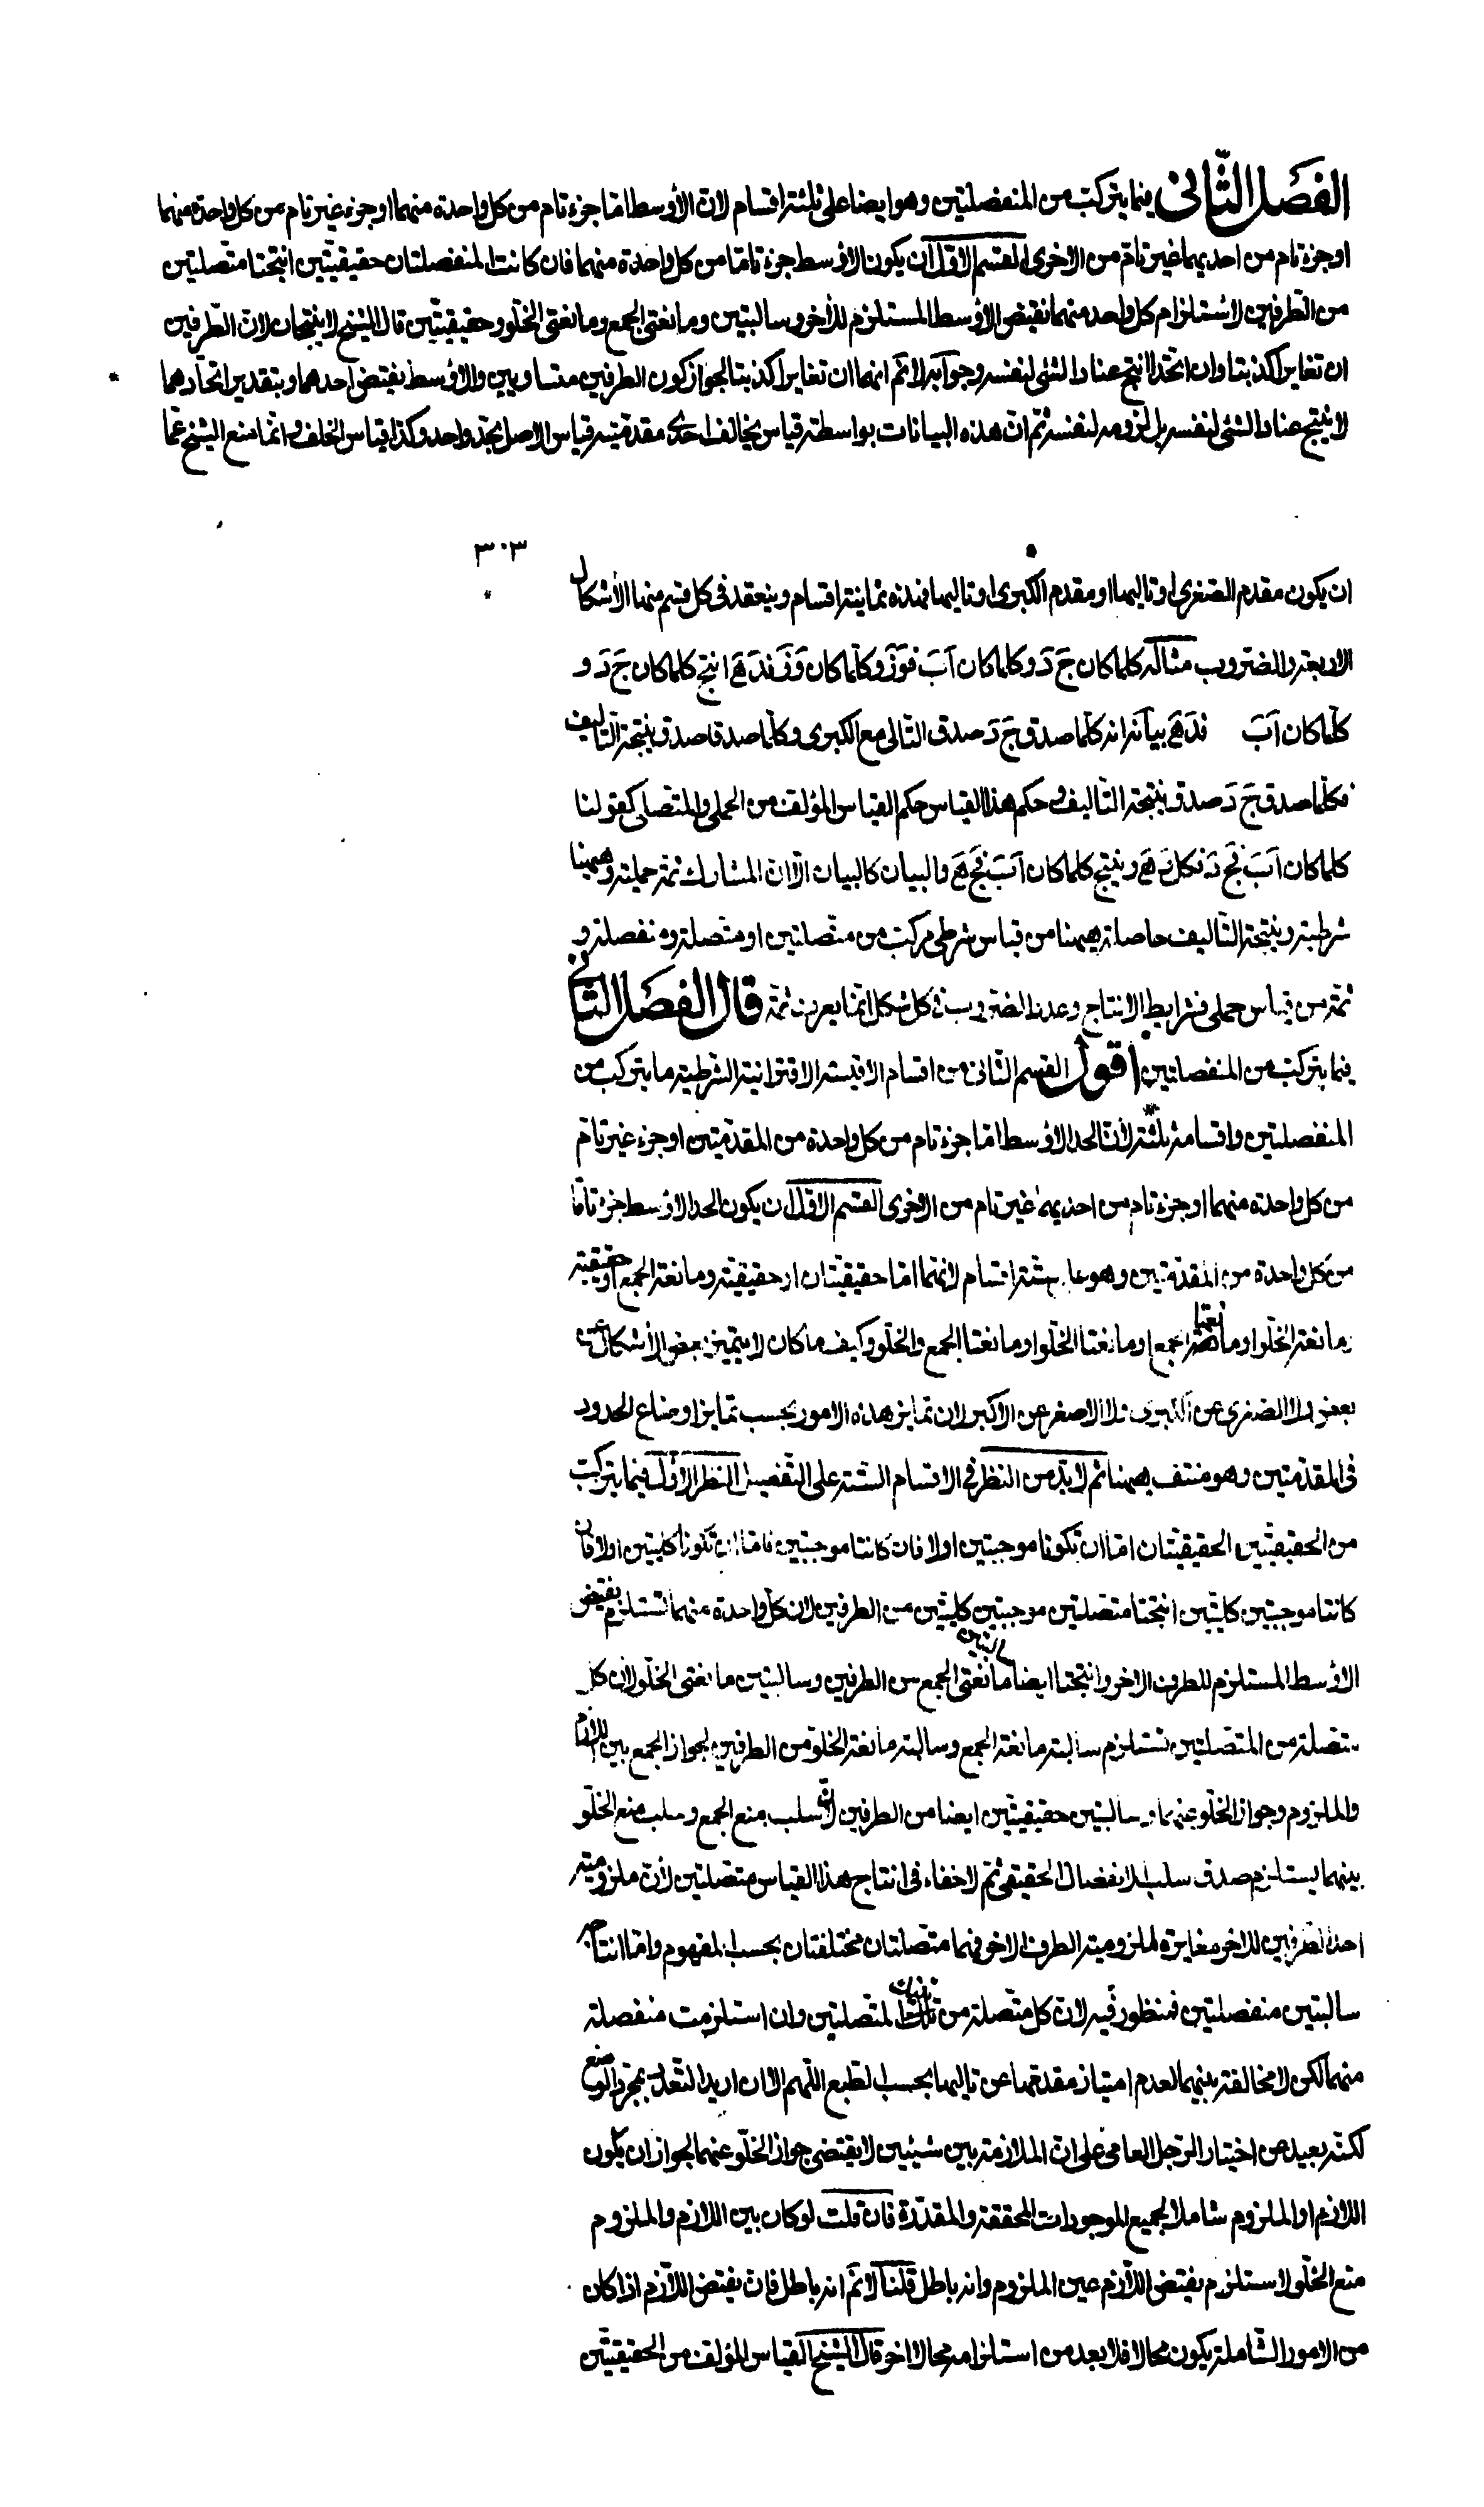 الفصل الثانى فيما يتركب من المنفصلتين وهو ايضا على ثلثة اقسام لان الأوسط اما جزء تام من كل واحدة منهما او جزء غير تام من كل واحدة منهما
او جزء تام من احديهما غير تام من الاخرى القسم الاول ان يكون الاوسط جزء تاما من كل واحدة منهما فان كانت المنفصلتان حقيقيتين انتجتا متصلتين
من الطرفين لاستلزام كل واحد منهما نقيض الاوسط المستلزم للاخر وسالبتين ومانعتى الجمع ومانعتى الخلو وحقيقيتين قال الشيخ لا ينتجان لان الطرفين
ان تغايرا كذبتا وان اتحدا انتج عناد الشئ لنفسه وجوابه لا نم انهما ان تغايرا كذبتا لجواز كون الطرفين متساويين والاوسط نقيض احدهما وبتقدير اتحادهما
لا ينتج عناد الشئ لنفسه بل لزومه لنفسه ثم ان هذه البيانات بواسطة قياس يخالف احدى مقدمتيه قياس الاصل بحد واحد وكذا قياس الخلف وانما منع الشيخ عما
٣٠٣
ان يكون مقدم الصغرى او تاليها او مقدم الكبرى او تاليها فهذه ثمانية اقسام وينعقد فى كل قسم منها الأشكال
الاربعة والضروب مثاله كلما كان ج د وكلما كان اب فوز وكلما كان وز فد ه انتج كلما كان ج د و
كلما كان اب فد ه بيانه انه كلما صدق ج د صدق التالى مع الكبرى وكلما صدقا صدق نتيجة التاليف
فكلما صدق ج د صدق نتيجة التاليف وحكم هذا القياس حكم القياس المؤلف من الحملى والمتصل كقولنا
كلما كان اب فج د وكل د ه وينتج كلما كان اب فج ه والبيان كالبيان الا ان المشارك ثمة حملية وههنا
شرطية ونتيجة التاليف حاصلة ههنا من قياس شرطى مركب من متصلتين او متصلة ومنفصلة و
ثمة من قياس حملى فشرايط الانتاج وعدد الضروب فى كل شكل انما يعرف ثمة قال الفصل الثانى
فيما يتركب من المنفصلتين اقول القسم الثانى من اقسام الاقيسة الاقترانية الشرطية ما يتركب من
المنفصلتين واقسامه ثلثة لأن الحد الاوسط اما جزء تام من كل واحدة من المقدمتين او جزء غير تام
من كل واحدة منهما او جزء تام من احديهما غير تام من الاخرى القسم الاول ان يكون الحد الاوسط جزء تاما
من كل واحدة من المقدمتين وهو على ستة اقسام لانهما اما حقيقيتان او حقيقية ومانعة الجمع او حقيقية
ومانعة الخلو او مانعتا الجمع او مانعتا الخلو او مانعتا الجمع والخلو وكيف ما كان لا يتميز بعض الأشكال عن
بعض ولا الصغرى عن الكبرى ولا الاصغر عن الاكبر لان تمايز هذه الامور بحسب تمايز اوضاع الحدود
فى المقدمتين وهو منتف ههنا ثم لا بد من النظر فى الاقسام الستة على التفصيل النظر الاول فيما يتركب
من الحقيقيتين الحقيقيتان اما ان تكونا موجبتين اولا فان كانتا موجبتين فاما ان تكونا كليتين اولا فان
كانتا موجبتين كليتين انتجتا متصلتين موجبتين كليتين من الطرفين لان كل واحدة منهما تستلزم نقيض
الاوسط المستلزم للطرف الاخر وانتجتا ايضا سالبتين مانعتى الجمع من الطرفين وسالبتين مانعتى الخلو لان كل
متصلة من المتصلتين تستلزم سالبة مانعة الجمع وسالبة مانعة الخلو من الطرفين لجواز الجمع بين اللازم
والملزوم وجواز الخلو عنهما وسالبتين حقيقيتين ايضا من الطرفين لان سلب منع الجمع وسلب منع الخلو
بينهما يستلزم صدق سلب الانفصال الحقيقى ثم لا خفاء فى انتاج هذا القياس متصلتين لأن ملزومية
احد الطرفين للاخر مغايرة لملزومية الطرف الاخر فهما متصلتان مختلفتان بحسب المفهوم واما انتاجه
سالبتين منفصلتين فمنظور فيه لان كل متصلة من تينك المتصلتين وان استلزمت منفصلة
منهما لكن لا مخالفة بينهما لعدم امتياز مقدمها عن تاليها بحسب الطبع اللهم الا ان اريد التعدد بمجرد الوضع
لكنه بعيد عن اختيار الرجل العامى على ان الملازمة بين شيئين لا يقتضى جواز الخلو عنهما لجواز ان يكون
اللازم او الملزوم شاملا لجميع الموجودات المحققة والمقدرة فان قلت لو كان بين اللازم والملزوم
منع الخلو لاستلزم نقيض اللازم عين الملزوم وانه باطل قلنا لا نم انه باطل فان نقيض اللازم اذا كان
من الامور الشاملة يكون محالا فلا بعد من استلزامه محالا اخر قال الشيخ القياس المؤلف من الحقيقيتين